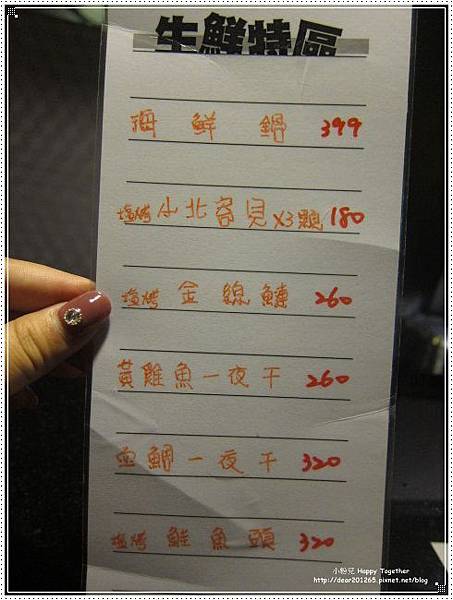 生鮮特區
海鮮鍋 399
塩烤 小北客貝 x3顆 180
塩烤 金線鰱 260
黃雞魚一夜干 260
血鯛一夜干 320
塩烤 鮭魚頭 320
小粉兒 Happy Together
http://dear201265.pixnet.net/blog